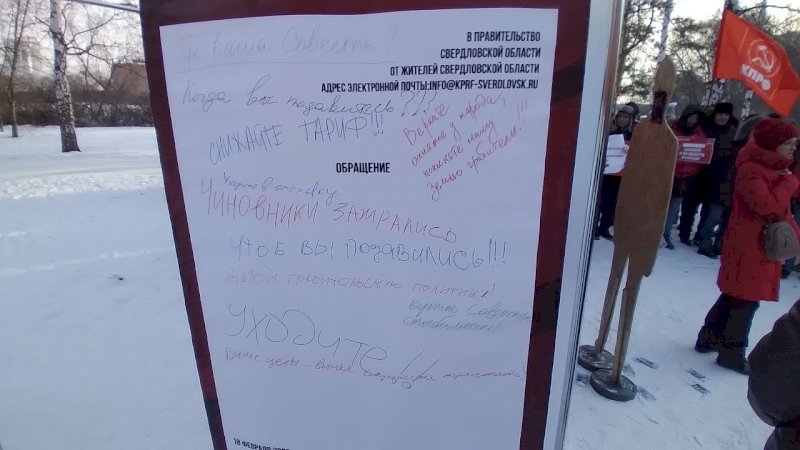 Где ваша Совесть?
В ПРАВИТЕЛЬСТВО
СВЕРДЛОВСКОЙ ОБЛАСТИ
ОТ ЖИТЕЛЕЙ СВЕРДЛОВСКОЙ ОБЛАСТИ
АДРЕС ЭЛЕКТРОННОЙ ПОЧТЫ:INFO@KPRF-SVERDLOVSK.RU
Когда вы подавитесь???
СНИЖАЙТЕ ТАРИФ!!!
Верните
отнятое у народа,
покиньте нашу
землю грабители!!!
ОБРАЩЕНИЕ
в отставку
ЧИНОВНИКИ ЗАЖРАЛИСЬ
ЧТОБ ВЫ ПОДАВИЛИСЬ!!!
ДОЛОЙ ГРАБИТЕЛЬСКУЮ ПОЛИТИКУ!
Стабильность!!!
УХОДИТЕ!!
Ваши цены -
18 ФЕВРАЛЯ
КПРФ